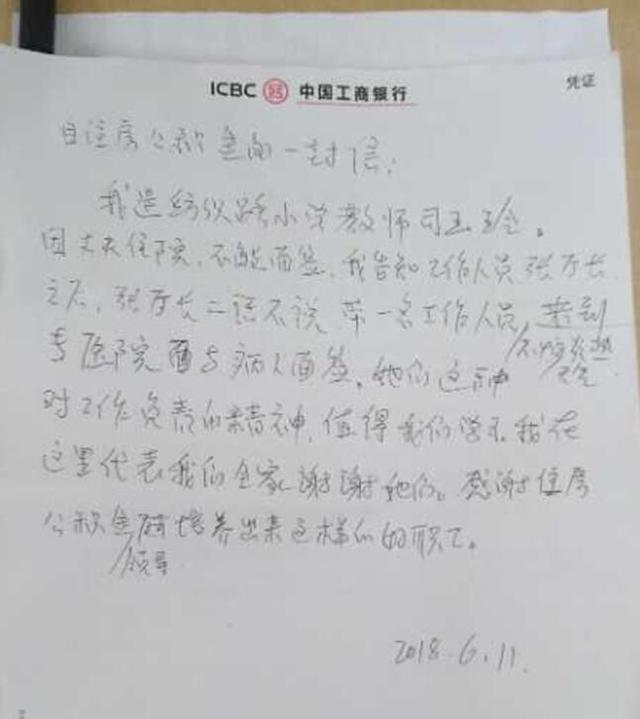 ICBC 中国工商银行
凭证
自住房公积金的一封信:
我是纺织路小学教师司玉玲。
因丈夫住院,不能面签,我告知工作人员张厅长
之后,张厅长二话不说 带一名工作人员,来到
专医院 与病人面签,她们这种 不怕炎热
对工作负责的精神,值得我们学习,我在
这里代表我们全家谢谢她们。感谢住房
公积金 培养出来这样的职工。
领导
2018.6.11.